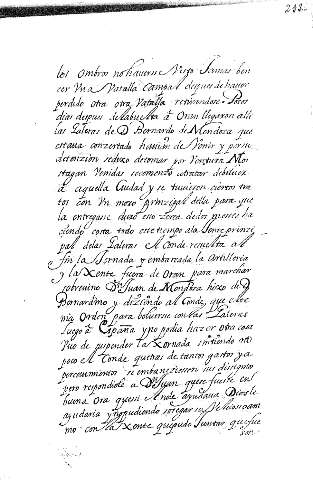 233
los ombros no haverse Visto Jamas ven
cer Vna Vatalla Campal despues de haver
perdido otra otra Vatalla retirandose. Pocos
dias despues de la buelta à Oran llegaron alli
las Galeras de D. Bernardo de Mendoza que
estava conzertado havian de Venir y por su
detenzion se dexo de tomar por Ventura Mos
tagan Venidas se comenzo à tratar de bolver
à aquella Ciudad y se tuvieron ciertos tra
tos con Vn moro principal della para que
la entregase duro esto zerca de dos meses ha
ciendo costa todo este tiempo à la Jente princi
pal de las Galeras el Conde resuelta al
fin la Jornada y embarcada la Artilleria
y la Xente fuera de Oran para marchar
sobrevino Dn Juan de Mendoza hixo de D.
Bernardino y diziendo al Conde, que el te
nia Orden para bolverse con las Galeras
luego à España y no podia hazer otra cosa
Vvo de suspender la Xornada sintiendo
poco el Conde que tras de tantos gastos y a
percevimientos se embarazasen sus designios
pero respondiole à Dn Juan que se fuese en
buena ora que si Ande ayudava Dios le
ayudaria y
mo con la Xente que pudo Juntar que fue